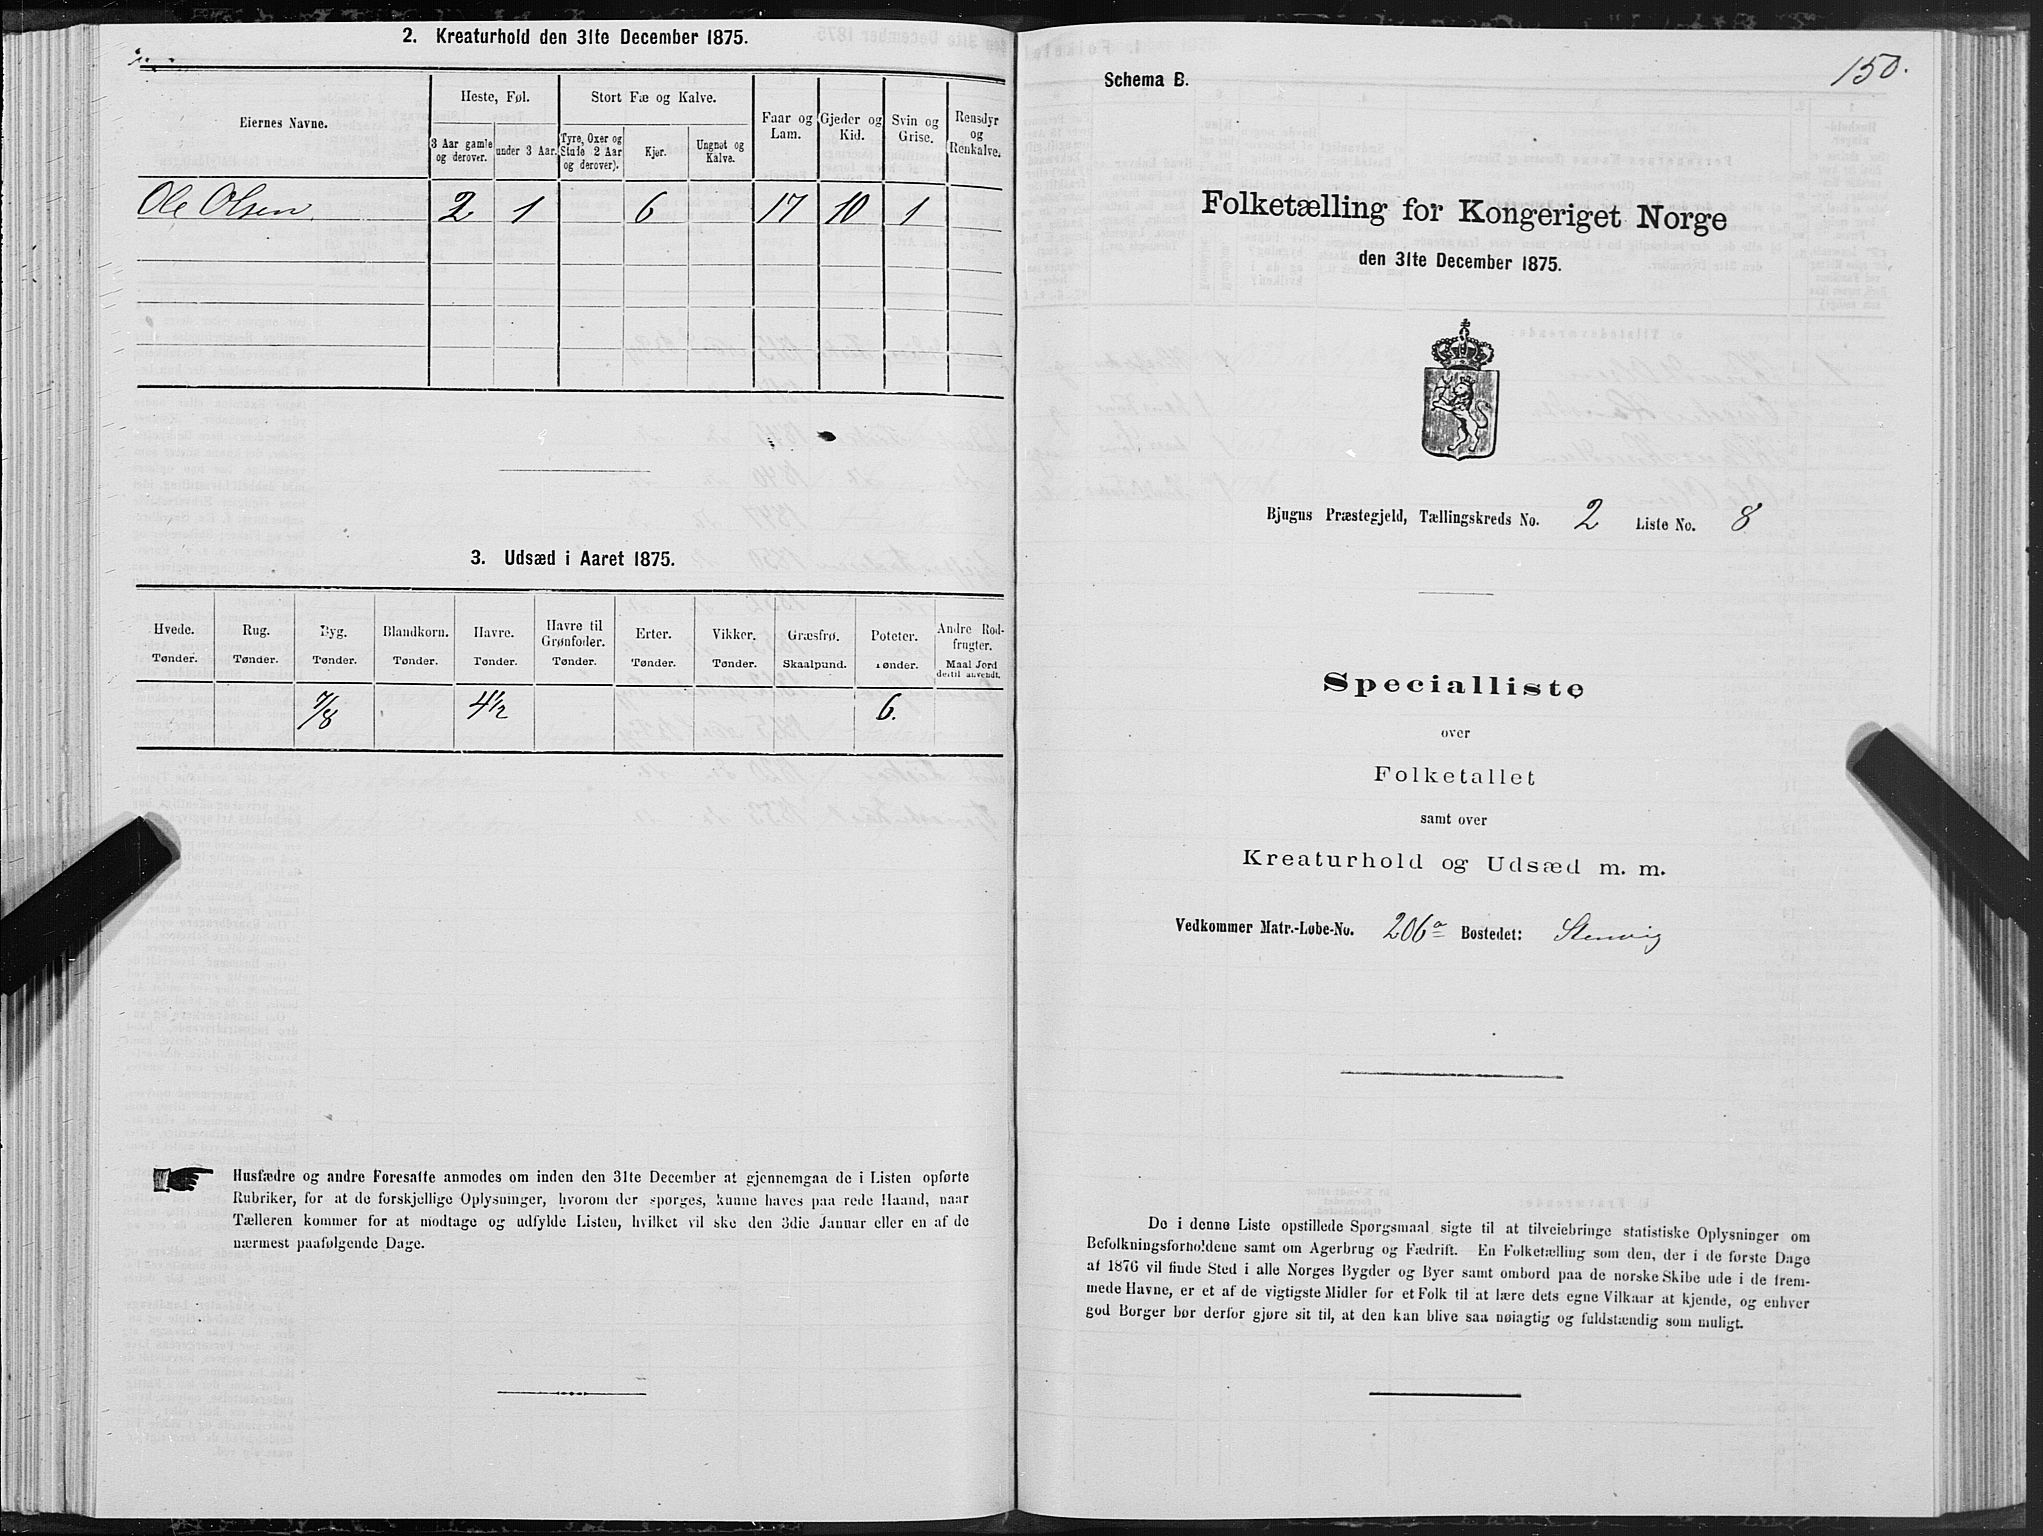 2. Kreaturhold den 31te December 1875.
Eiernes Navne.
Heste, Føl.
Stort Fæ og Kalve.
Faar og
Lam.
Gjeder og
Kid.
Svin og
Grise.
Rensdyr
og
Renkalve.
3 Aar gamle
og derover.
under 3 Aar.
Tyre, Oxer og
Stude 2 Aar
og derover).
Kjør.
Ungnøt og
Kalve.
Ole Olsen 2 1 6 17 10 1
3. Udsæd i Aaret 1875.
Hvede.
Tønder.
Rug.
Tønder.
Byg.
Tønder.
Blandkorn.
Tønder.
Havre.
Tønder.
Havre til
Grønfoder.
Tønder.
Erter.
Tønder.
Vikker.
Tønder.
Græsfrø.
Skaalpund.
Poteter.
Tønder.
Andre Rod-
frugter.
Maal Jord
dertil anvendt.
7/8 4 1/2 6.
Husfædre og andre Foresatte anmodes om inden den 31te December at gjennemgaa de i Listen opførte
Rubriker, for at de forskjellige Oplysninger, hvorom der spørges, kunne haves paa rede Haand, naar
Tælleren kommer for at modtage og udfylde Listen, hvilket vil ske den 3die Januar eller en af de
nærmest paafølgende Dage.
150.
Schema B.
Folketælling for Kongeriget Norge
den 31te December 1875.
Bjugns Præstegjeld, Tællingskreds No. 2 Liste No. 8
Specialliste
over
Folketallet
samt over
Kreaturhold og Udsæd m. m.
Vedkommer Matr.-Løbe-No. 206a Bostedet: Stenvig
De i denne Liste opstillede Spørgsmaal sigte til at tilveiebringe statistiske Oplysninger om
Befolkningsforholdene samt om Agerbrug og Fædrift. En Folketælling som den, der i de første Dage
af 1876 vil finde Sted i alle Norges Bygder og Byer samt ombord paa de norske Skibe ude i de frem-
mede Havne, er et af de vigtigste Midler for et Folk til at lære dets egne Vilkaar at kjende, og enhver
god Borger bør derfor gjøre sit til, at den kan blive saa nøiagtig og fuldstændig som muligt.